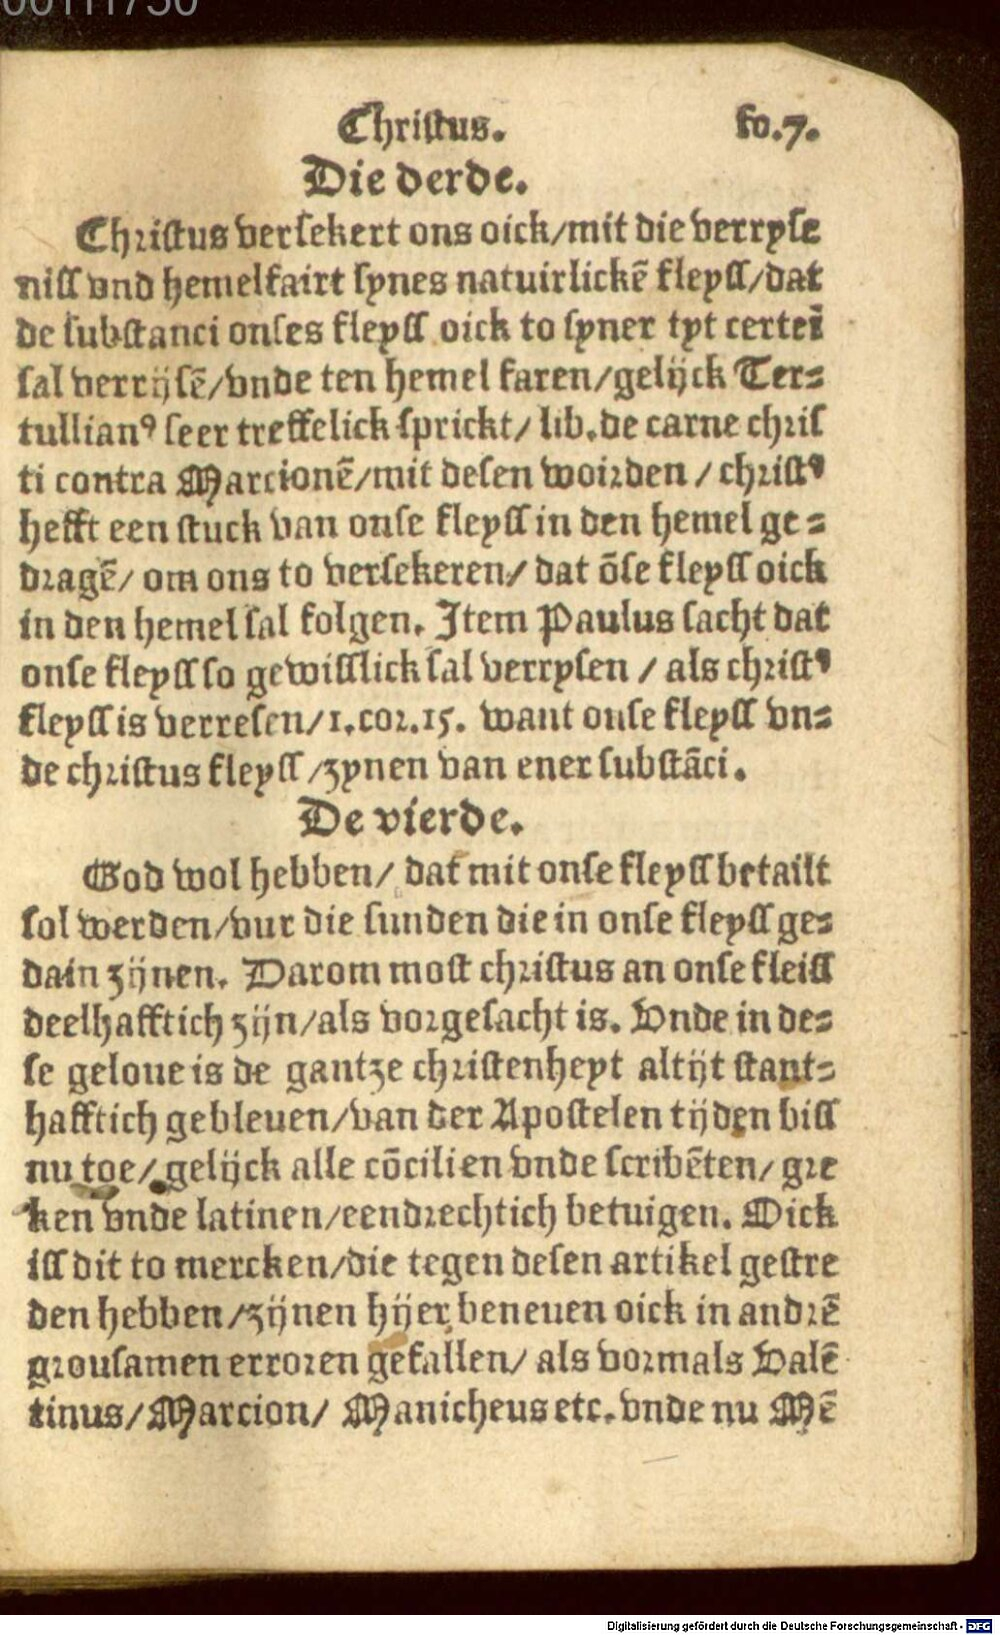 Christus. fo.7.
Die derde.
Christus versekert ons oick/mit die verryse
niss vnd hemelfairt synes natuirlickē fleyss/dat
de substanci onses fleyss oick to syner tyt certeī
sal verrijsē/vnde ten hemel faren/gelijck Ter⸗
tullianꝰ seer treffelick sprickt/ lib.de carne chris
ti contra Marcionē/mit desen woirden / christꝰ
hefft een stuck van onse fleyss in den hemel ge⸗
dragē/ om ons to versekeren/ dat ōse fleyss oick
in den hemel sal folgen. Item Paulus sacht dat
onse fleyss so gewisslick sal verrysen / als christꝰ
fleyss is verresen/1.cor.15. want onse fleyss vn⸗
de christus fleyss /zynen van ener substāci.
De vierde.
God wol hebben/ dat mit onse fleyss betailt
sol werden/vur die sunden die in onse fleyss ge⸗
dain zijnen. Darom most christus an onse fleiss
deelhafftich zijn/als vorgesacht is. Vnde in de⸗
se geloue is de gantze christenheyt altijt stant⸗
hafftich gebleuen/van der Apostelen tijden biss
nu toe/ gelijck alle cōcilien vnde scribēten/ gre
ken vnde latinen/eendrechtich betuigen. Oick
iss dit to mercken/die tegen desen artikel gestre
den hebben/zijnen hijer beneuen oick in andrē
grousamen erroren gefallen/ als vormals Valē
tinus/Marcion/ Manicheus etc. vnde nu Mē
Digitalisierung gefördert durch die Deutsche Forschungsgemeinschaft - DFG